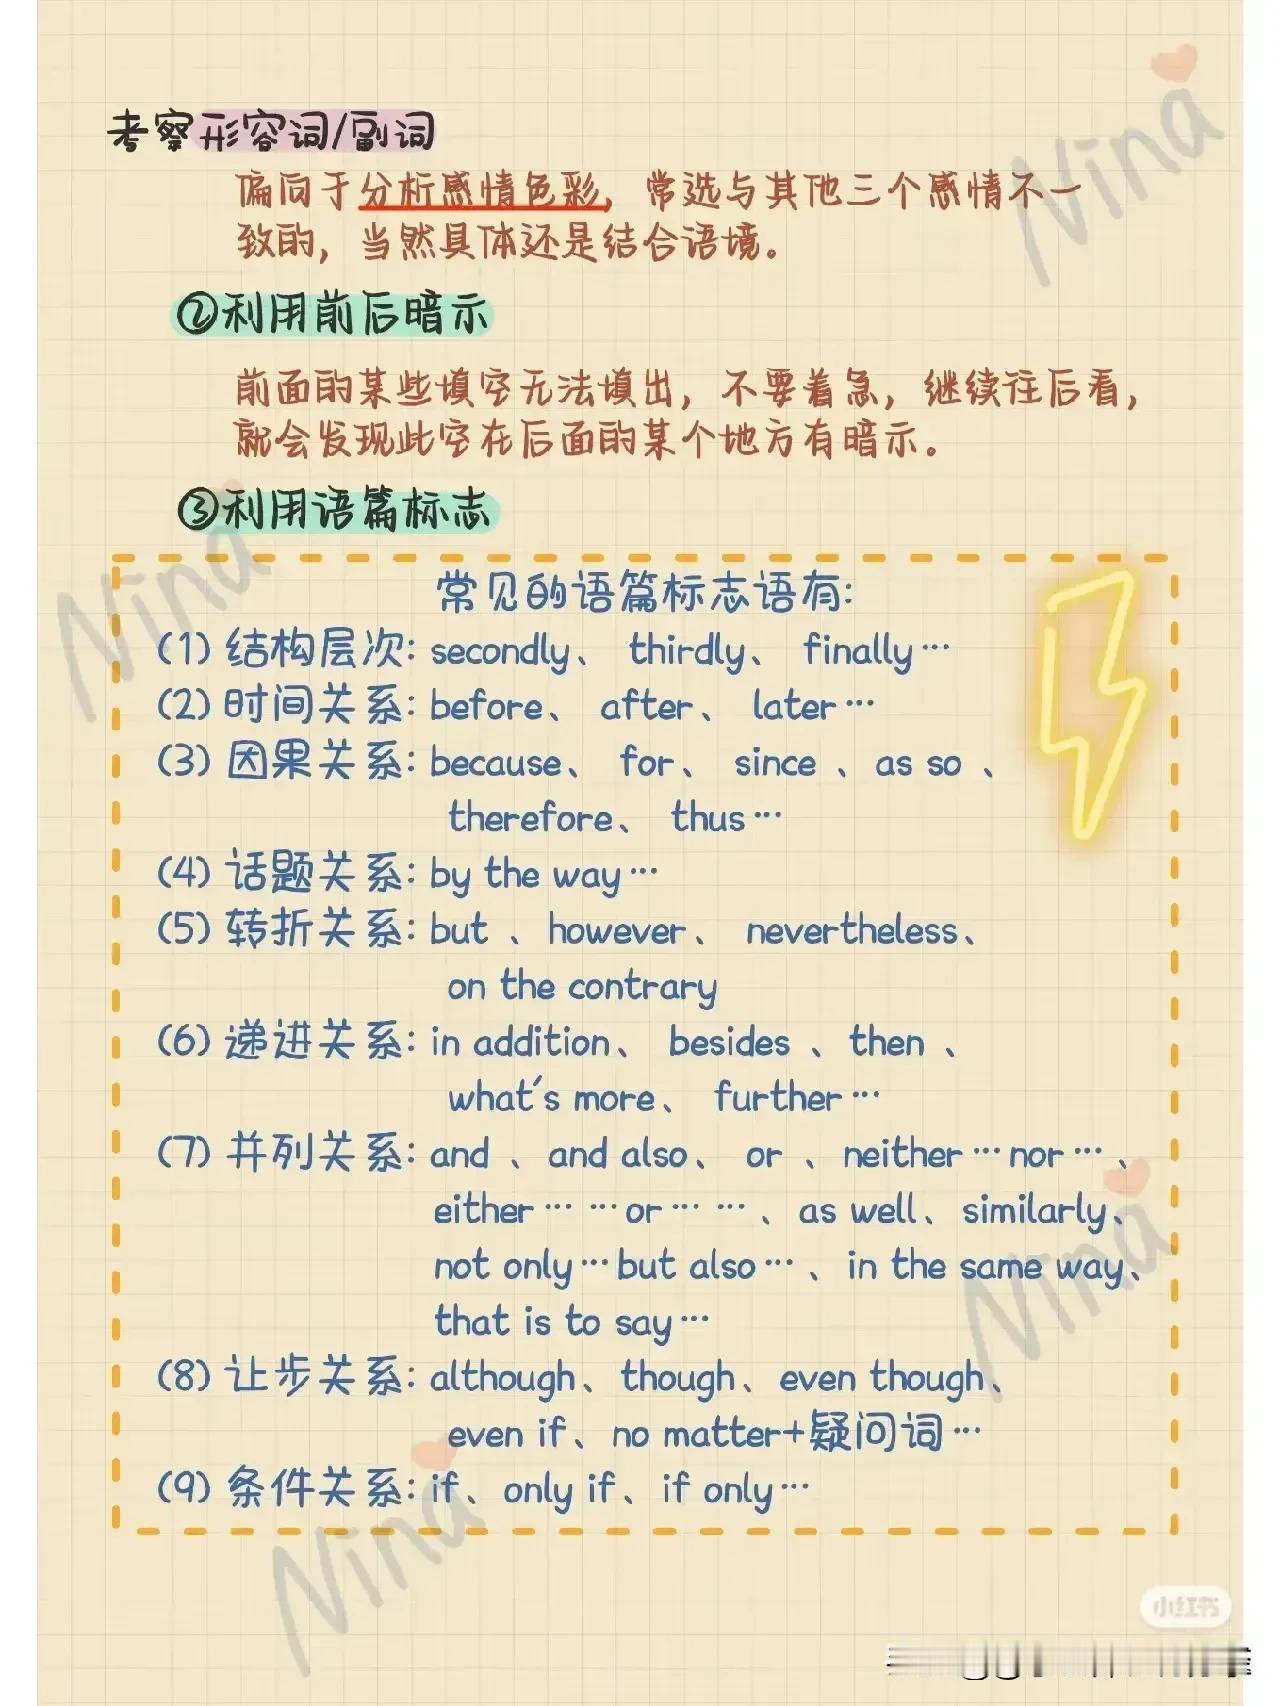 考察形容词/副词
偏向于分析感情色彩，常选与其他三个感情不一
致的，当然具体还是结合语境。
②利用前后暗示
前面的某些填空无法填出，不要着急，继续往后看，
就会发现此空在后面的某个地方有暗示。
③利用语篇标志
常见的语篇标志语有：
(1) 结构层次：secondly、 thirdly、 finally…
(2) 时间关系：before、 after、 later…
(3) 因果关系：because、 for、 since 、as so 、
therefore、 thus…
(4) 话题关系：by the way…
(5) 转折关系：but 、however、 nevertheless、
on the contrary
(6) 递进关系：in addition、 besides 、then 、
what's more、 further…
(7) 并列关系：and 、and also、 or 、neither…nor…、
either… …or… …、as well、similarly、
not only…but also…、in the same way、
that is to say…
(8) 让步关系：although、though、even though、
even if、no matter+疑问词…
(9) 条件关系：if、only if、if only…
Nina
Nina
Nina
Nina
小红书